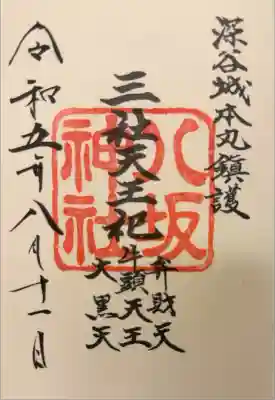 深谷城本丸鎮護
三社天王祀
弁財天
牛頭天王
大黒天
八坂神社
令和五年八月十一日